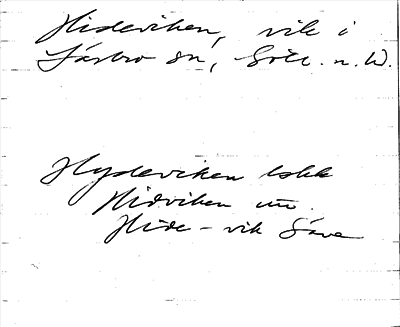 Hideviken, vik i
Lärbro sn, Gotl. n. W.
Hydeviken tskk
Hidviken utv.
Hide-vik Säve